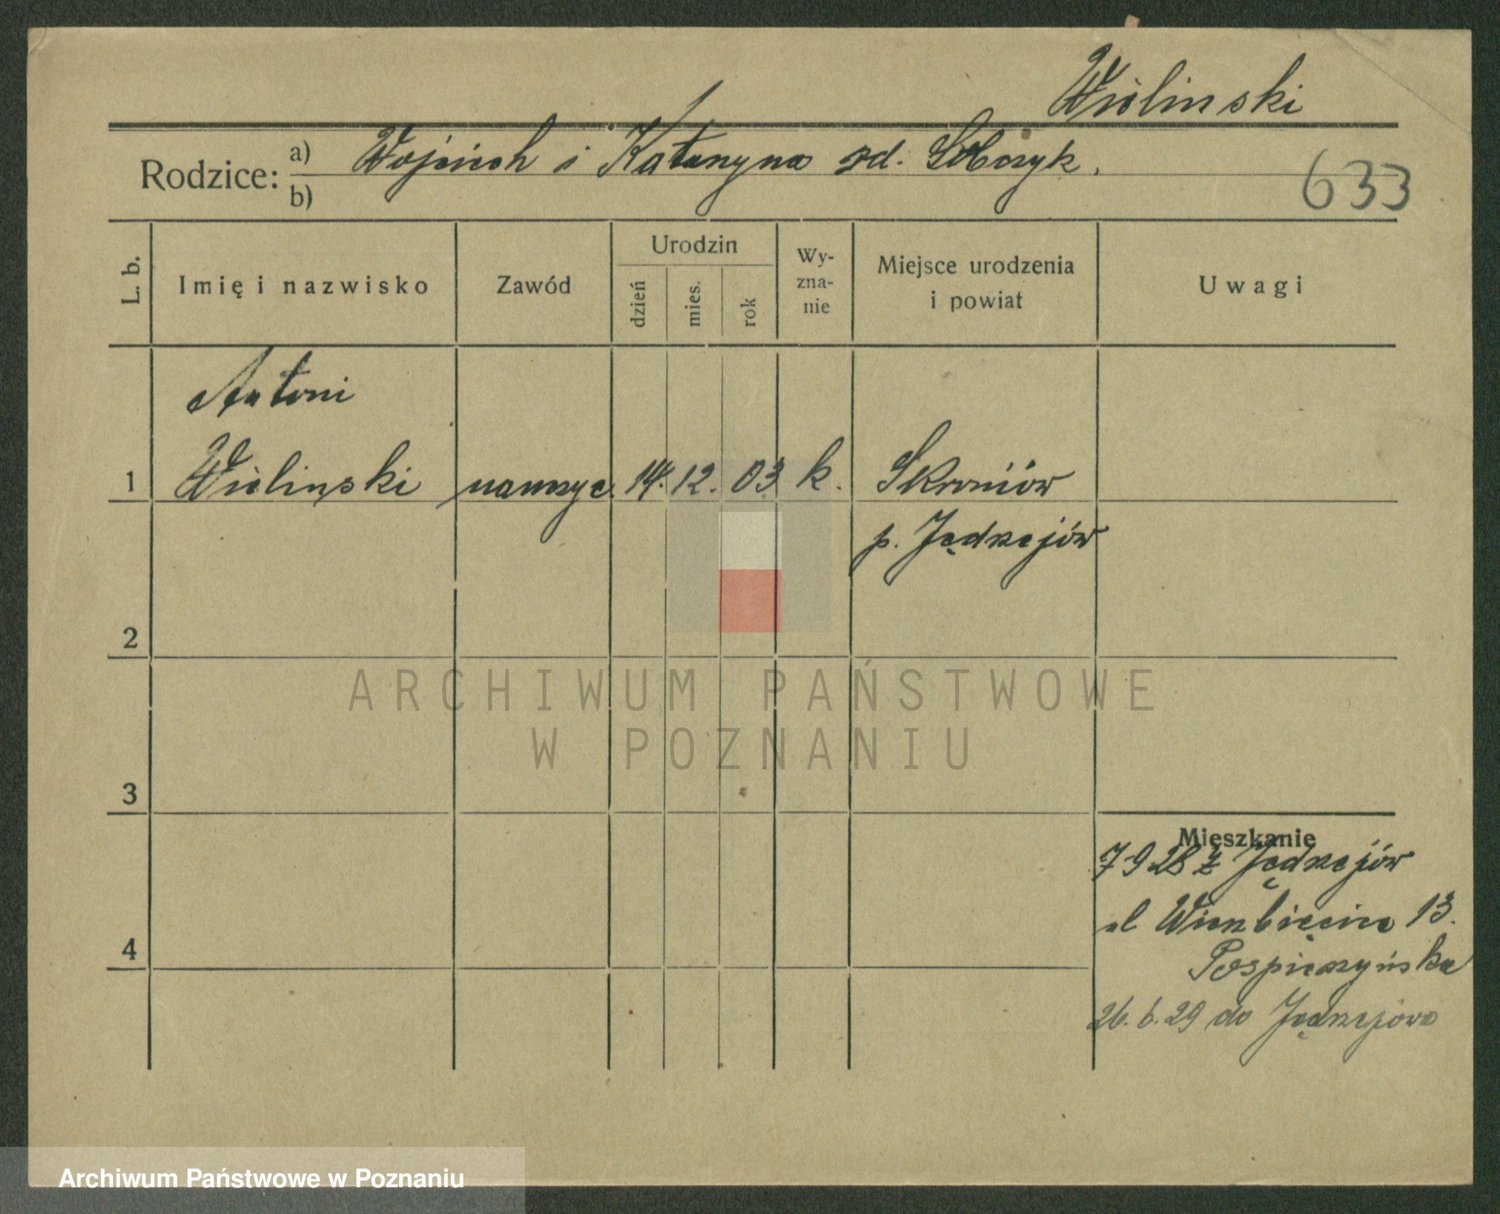 Wielinski
Rodzice: a) Wojciech i Katarzyna zd. Sobczyk.
b)
633
L. b.
Imię i nazwisko
Zawód
Urodzin
dzień
mies.
rok
Wy-
zna-
nie
Miejsce urodzenia
i powiat
Uwagi
Antoni
1 Wielinski nauczyc. 14. 12. 03 k. Skroniów
p. Jędrzejów
2
3
4
ARCHIWUM PAŃSTWOWE
W POZNANIU
Mieszkanie
7 9 28 z Jędrzejów
ul Wierzbięcice 13.
Pospieszyńska
26. 6. 29 do Jędrzejowa
Archiwum Państwowe w Poznaniu